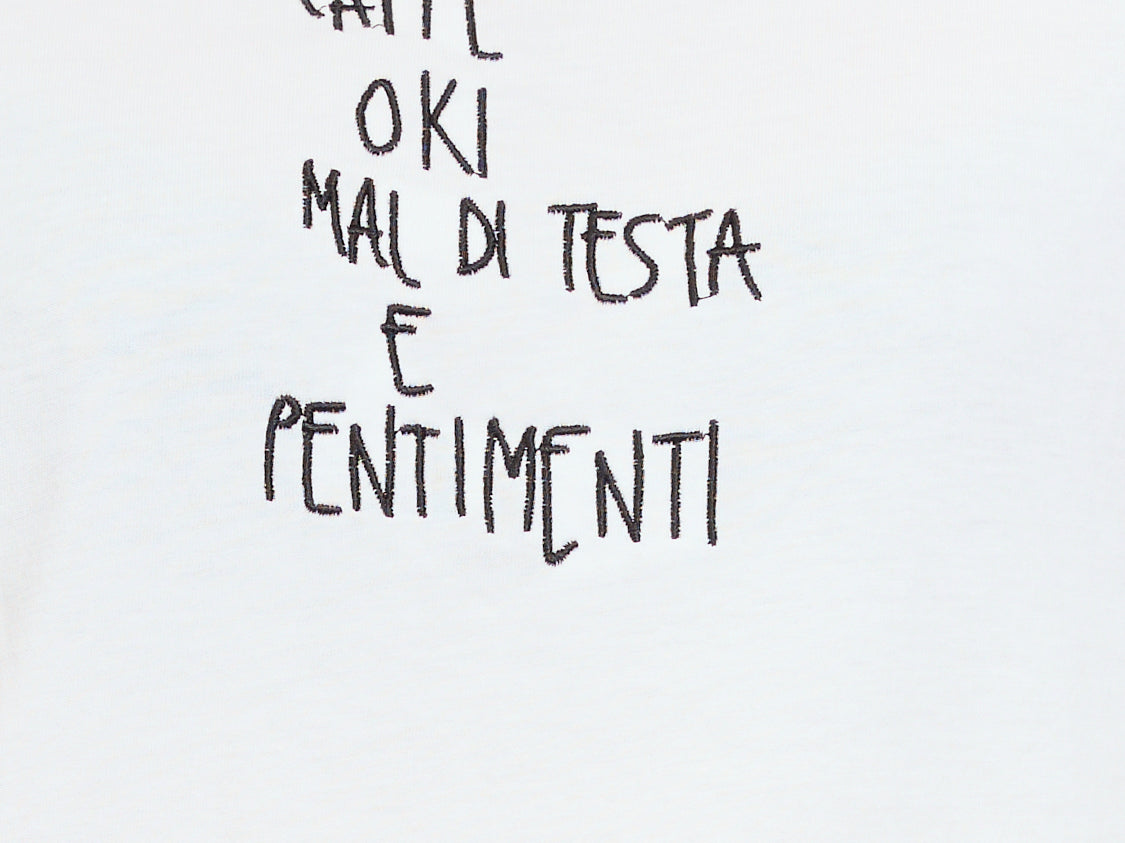 OKI
MAL DI TESTA
E
PENTIMENTI